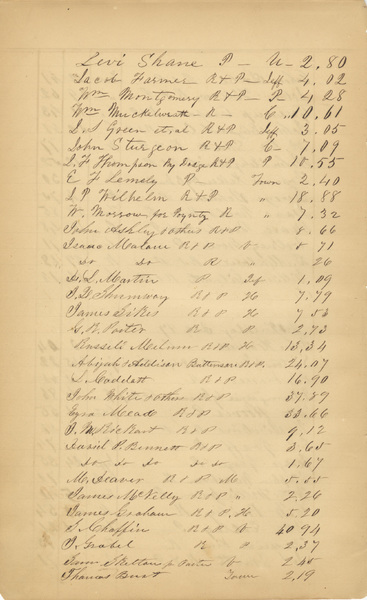 Levi Shane P - U - 2.80
Jacob Farmer R & P - Jeff 4.02
Wm Montgomery R & P - P - 4.28
Wm Muckelwrath - R - C 10.61
L S Green et al R & P Jeff 3.05
John Sturgeon R & P C - 7.09
L F Thompson By R & P P 10.55
E F Lemely P - Town 2.40
L P Wilhelm R & P " 18.88
W. Morrow for Poyntz R " 7.32
John Ashby & others R & P 8.66
Isaac Malone R & P V 71
Do Do R " 26
L. Martin P Jef 1.09
Shumway R & P H 7.79
James Sikes R & P H 7.53
G. W. Porter R P 2.73
Russell Milum R & P H 13.34
Abijah & Addison Patterson R & P. 24.07
S. Caddell R & P 16.90
John White & others R & P 37.29
Ezra Meade R & P 33.66
R & P 9.12
David P. Bennett R & P 3.65
Do Do Do Do Do 1.67
M. Deaver R & P M
James McKelly R & P " 2.26
James Graham R & P. H 5.20
S. Chaffin R & P V 40 94
J. Grabel R P 2.37
Skelton for Porter V 2.45
Thomas Bust Town 2.19